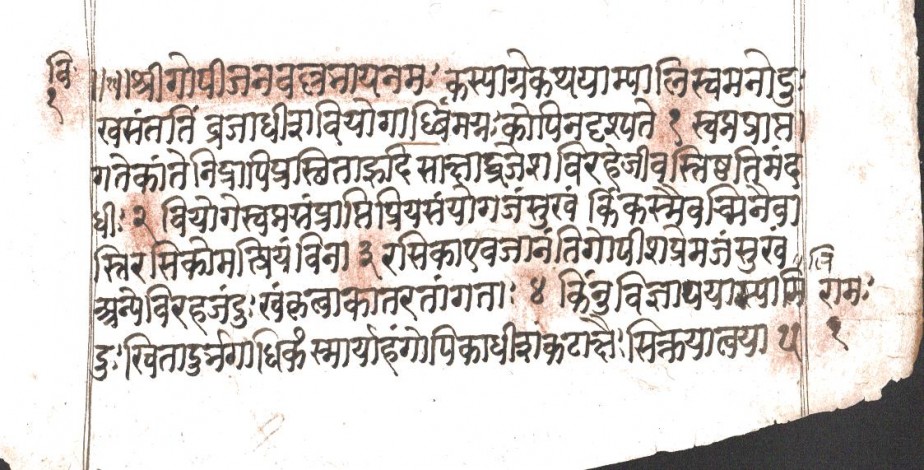 वि
१
॥श्रीगोपीजनवल्लभायनमः कस्याग्रेकथयाम्यालिस्वमनोदुः
खसंततिं व्रजाधीशवियोगार्ध्धिमग्नःकोपिनदृश्यते १ स्वप्नप्राप्त
गतेकांते निद्रापिप्रस्थिताहृदि साक्षाद्व्रजेशविरहेजीवस्तिष्ठतिमंद
धीः २ वियोगेस्वप्नसंप्राप्तिप्रियसंयोगजंसुखं किंकस्मैवच्मिनैवा
स्तिरसिकोमत्प्रियंविना ३ रसिकाएवजानंतिगोपीशप्रेमजंसुखं
अन्येविरहजंदुःखंकातरतांगताः ४ किंनुविज्ञापयाम्यामि
दुःखितादुर्भगाधिकं स्मार्याहंगोपिकाधीशकटाक्षैःसिक्तयात्वया ५
रामः
१